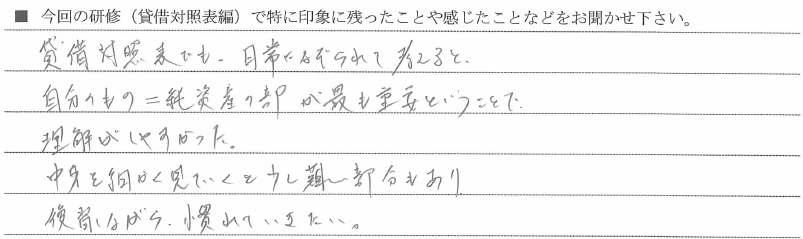 ■ 今回の研修（貸借対照表編）で特に印象に残ったことや感じたことなどをお聞かせ下さい。
貸借対照表でも、日常になぞらえて考えると、
自分のもの＝純資産の部が最も重要ということで、
理解がしやすかった。
中身を細かく見ていくと少し難しい部分もあり
復習しながら、慣れていきたい。